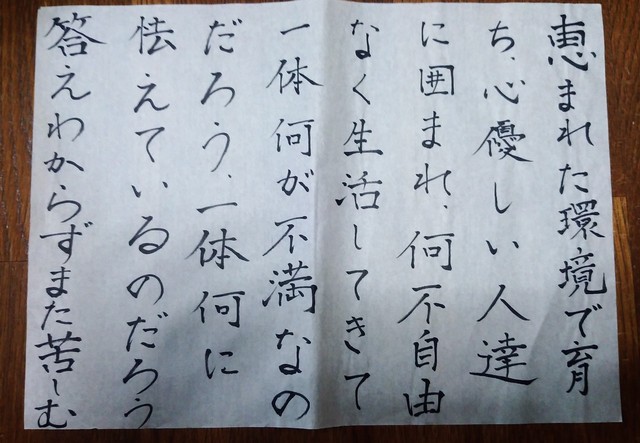 恵まれた環境で育
ち、心優しい人達
に囲まれ、何不自由
なく生活してきて
一体何が不満なの
だろう、一体何に
怯えているのだろう
答えわからずまた苦しむ